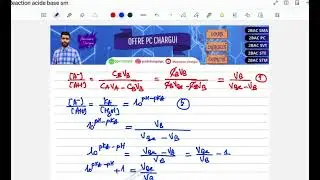 reaction acide base sm
OFFRE PC CHARGUI
2BAC SMA
2BAC PC
2BAC SVT
2BAC STE
2BAC STM
[A⁻]/[AH] = C_B V_B / (C_A V_A - C_B V_B) = C_B V_B / (C_B V_BE - C_B V_B) = V_B / (V_BE - V_B) ④
[A⁻]/[AH] = K_A/[H₃O⁺] = 10^(pH-pKA) ⑤
10^(pH-pKA) = V_B / (V_BE - V_B)
10^(pKA-pH) = (V_BE - V_B) / V_B = V_BE/V_B - 1
10^(pKA-pH) + 1 = V_BE/V_B